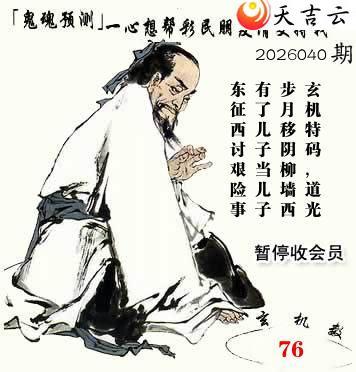 天吉云
「鬼魂预测」一心想帮彩民朋
2026040期
玄机特码，道光
步月移阴柳墙西
有了儿子当儿子
东征西讨艰险事
暂停收会员
玄机数
76